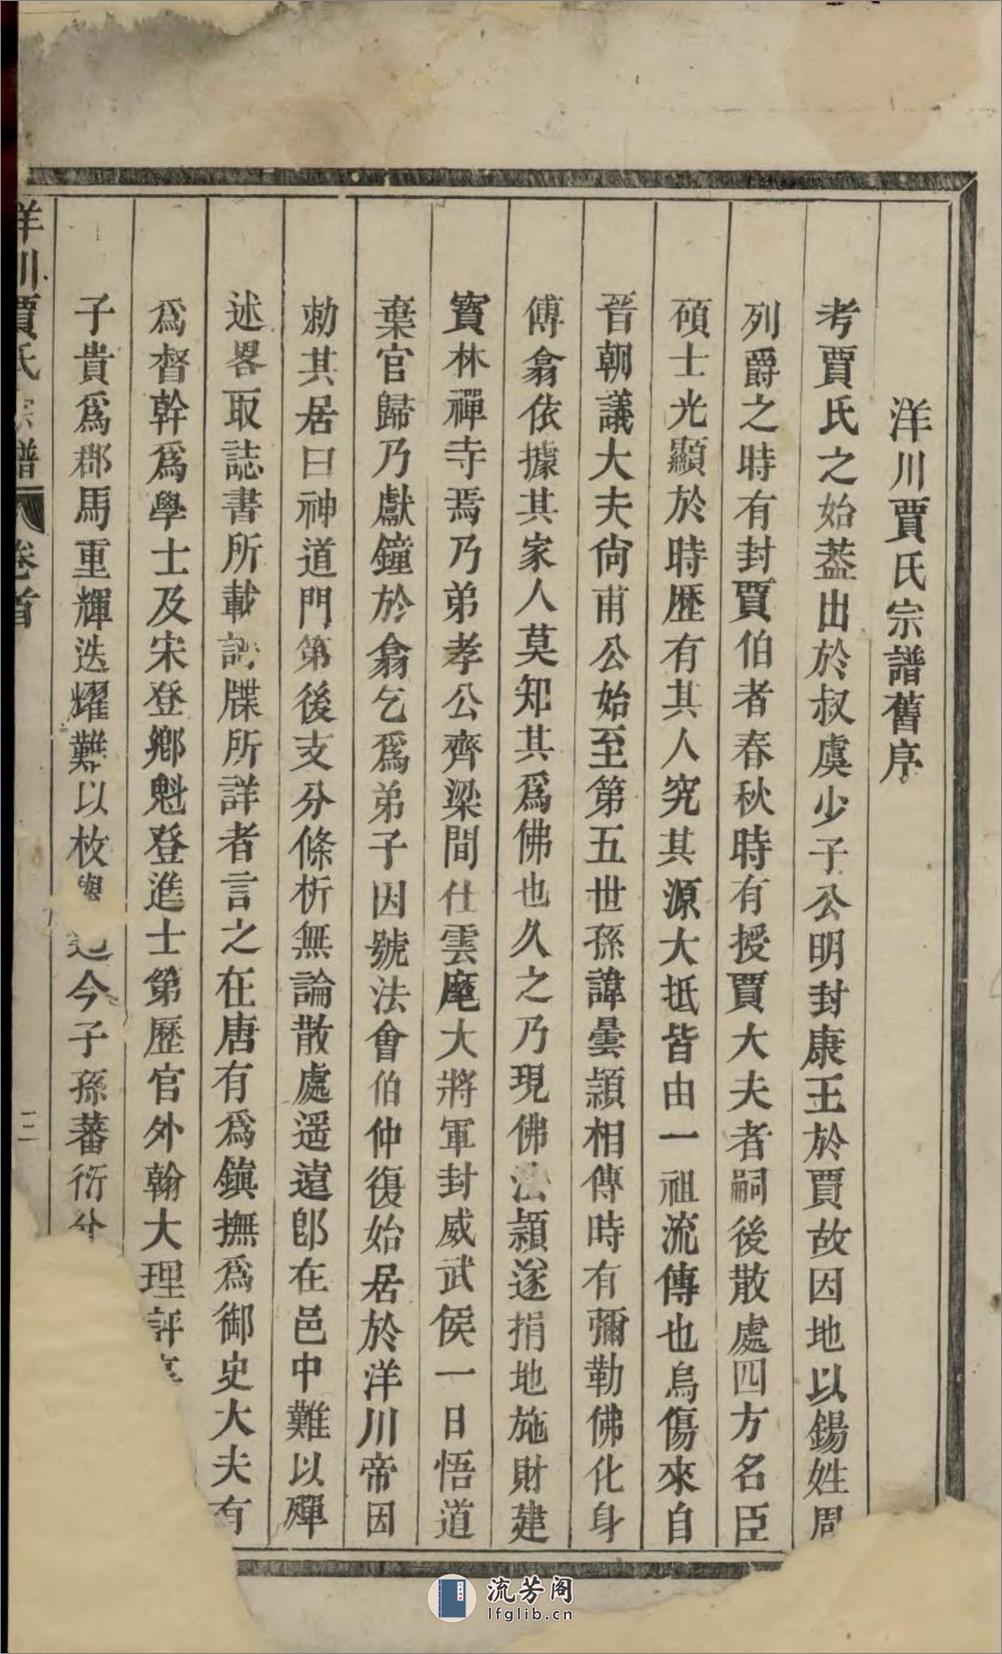 洋川賈氏宗譜舊序
考賈氏之始葢出於叔虞少子公明封康王於賈故因地以錫姓周
列爵之時有封賈伯者春秋時有授賈大夫者嗣後散處四方名臣
碩士光顯於時歷有其人究其源大抵皆由一祖流傳也烏傷來自
晉朝議大夫尙甫公始至第五世孫諱曇頴相傳時有彌勒佛化身
傅翕依據其家人莫知其爲佛也久之乃現佛法頴遂捐地施財建
寳林禪寺焉乃弟孝公齊梁間仕雲麾大將軍封威武侯一日悟道
棄官歸乃獻鐘於翕乞爲弟子因號法會伯仲復始居於洋川帝因
勅其居曰神道門第後支分條析無論散處遥遠卽在邑中難以殫
述畧取誌書所載 牒所詳者言之在唐有爲鎭撫爲御史大夫有
爲督幹爲學士及宋登鄉魁登進士第歷官外翰大理評
子貴爲郡馬重輝迭耀難以枚 今子孫蕃衍
洋川賈氏宗譜 卷首 二
流芳阁
lfglib.cn